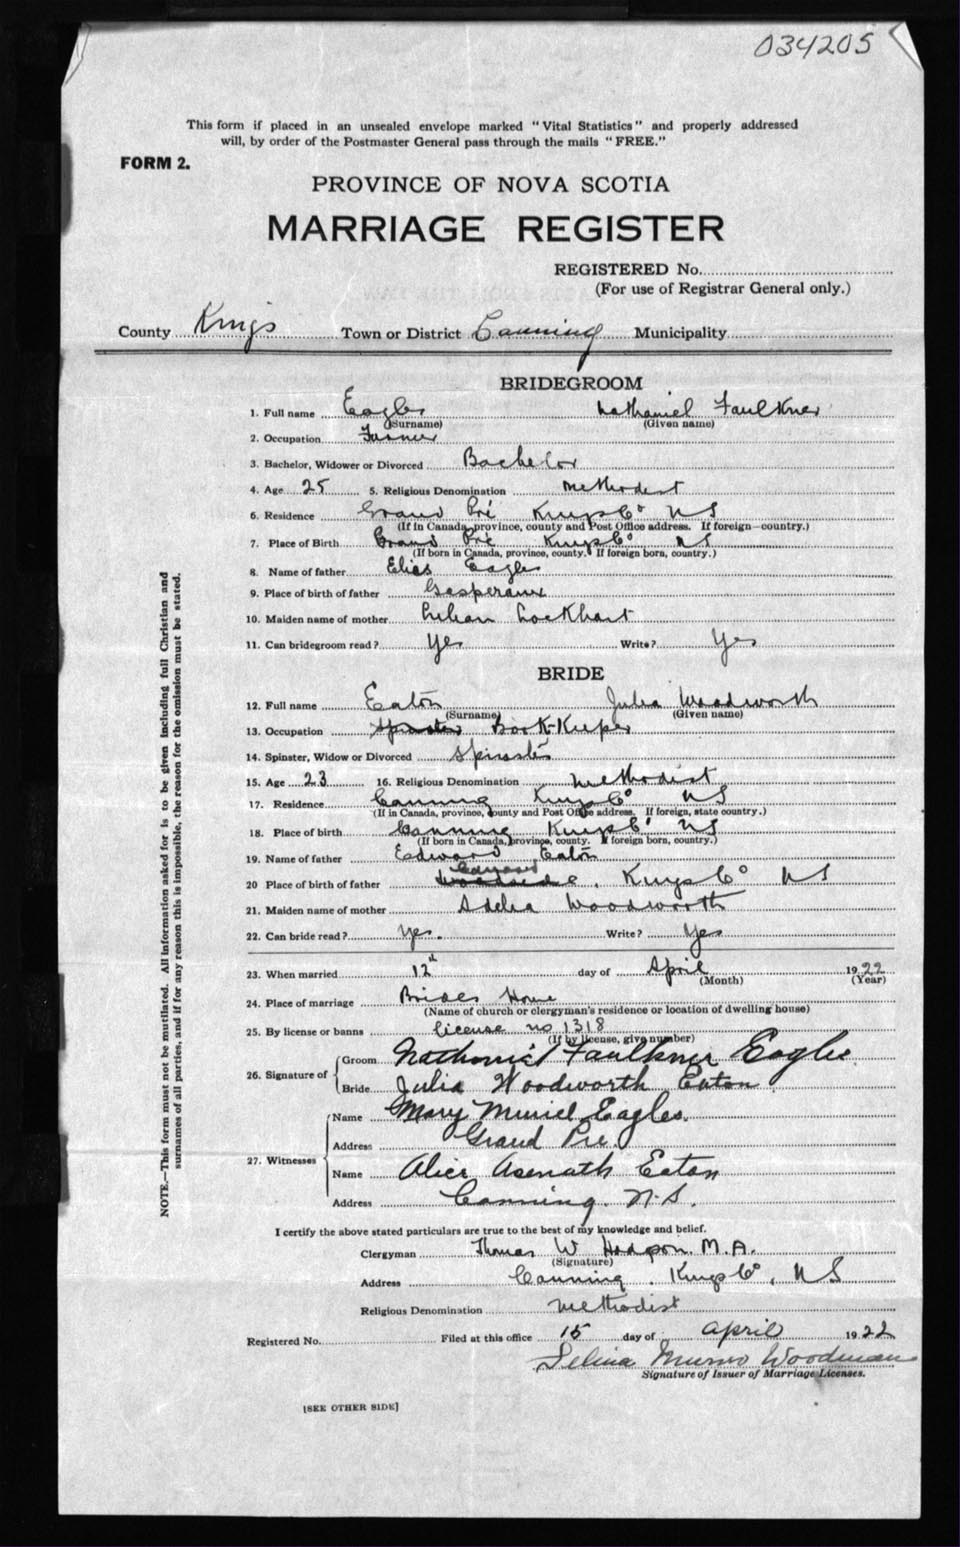 034205
This form if placed in an unsealed envelope marked "Vital Statistics" and properly addressed
will, by order of the Postmaster General pass through the mails "FREE."
FORM 2.
PROVINCE OF NOVA SCOTIA
MARRIAGE REGISTER
REGISTERED No.
(For use of Registrar General only.)
County Kings Town or District Canning Municipality
BRIDEGROOM
1. Full name Eagles Nathaniel Faulkner
(Surname) (Given name)
2. Occupation Farmer
3. Bachelor, Widower or Divorced Bachelor
4. Age 25 5. Religious Denomination Methodist
6. Residence Grand Pré Kings Co NS
(If in Canada, province, county and Post Office address. If foreign—country.)
7. Place of Birth Grand Pré Kings Co NS
(If born in Canada, province, county. If foreign born, country.)
8. Name of father Elias Eagles
9. Place of birth of father Gasperaux
10. Maiden name of mother Lilian Lockhart
11. Can bridegroom read? Yes Write? Yes
BRIDE
12. Full name Eaton Julia Woodworth
(Surname) (Given name)
13. Occupation Spinster Book-Keeper
14. Spinster, Widow or Divorced Spinster
15. Age 23 16. Religious Denomination Methodist
17. Residence Canning Kings Co NS
(If in Canada, province, county and Post Office address. If foreign, state country.)
18. Place of birth Canning Kings Co NS
(If born in Canada, province, county. If foreign born, country.)
19. Name of father Edward Eaton
20 Place of birth of father Woodside, Kings Co NS
21. Maiden name of mother Adelia Woodworth
22. Can bride read? Yes. Write? Yes
23. When married 12th day of April 1922
(Month) (Year)
24. Place of marriage Brides Home
(Name of church or clergyman's residence or location of dwelling house)
25. By license or banns license no 1318
(If by license, give number)
26. Signature of Groom Nathaniel Faulkner Eagles
Bride Julia Woodworth Eaton
27. Witnesses Name Mary Muriel Eagles.
Address Grand Pre.
Name Alice Asenath Eaton
Address Canning. N.S.
I certify the above stated particulars are true to the best of my knowledge and belief.
Clergyman Thomas W Hodgson. M.A.
(Signature)
Address Canning. Kings Co, NS
Religious Denomination Methodist
Registered No. Filed at this office 15 day of April 1922
Selina Munro Woodman
Signature of Issuer of Marriage Licenses.
[SEE OTHER SIDE]
NOTE.—This form must not be mutilated. All information asked for is to be given including full Christian and
surnames of all parties, and if for any reason this is impossible, the reason for the omission must be stated.